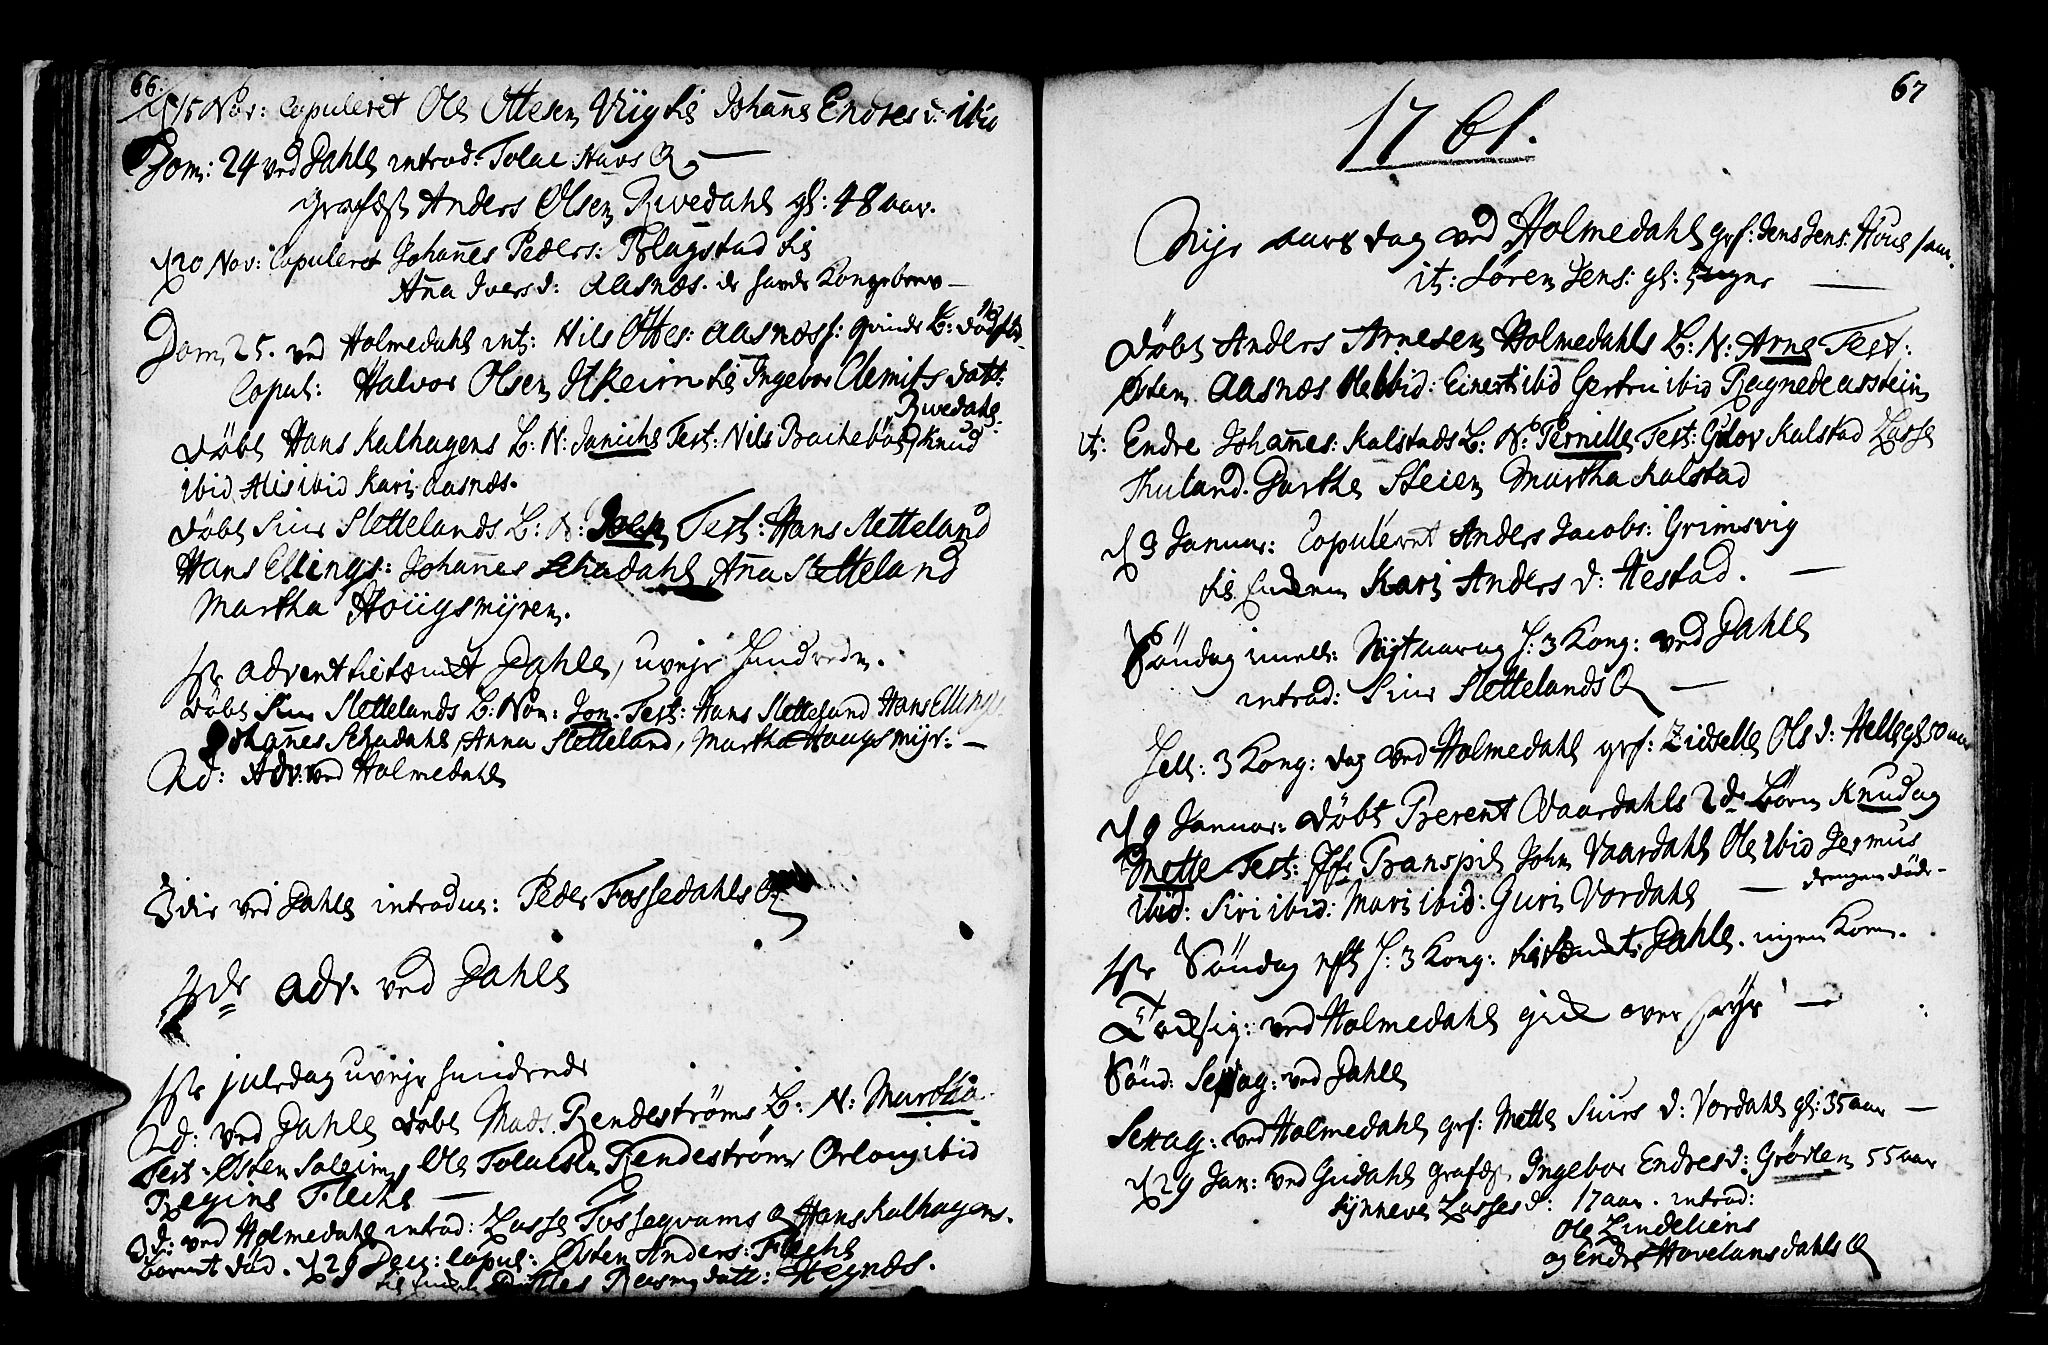 66.
d 15 Nov: Copuleret Ole Ottesen Viig til Johanne Endres d: ibid
Dom: 24 ved Dahle introd: Tolac Haus Q
grafæst Anders Olsen Rivedahl gl: 48 aar.
d 20 Nov: Copuleret Johannes Peders: Flagstad til
Anna Ivers d: Aasnæs. de havde Kongebrev
Dom, 25. ved Holmedahl int: Nils Ottes: Aasnæss: Qvinde B:
Copul: Halvor Olsen til Ingebor Clemits datt:
Rivedahl.
Døbt Hans Kalhagens B: N: Janiche Test: Nils Knud
ibid, Alis ibid Kari Aasnæs.
Døbt Siur Slettelands B: N: Test: Hans Sletteland
Hans Ellings: Johannes Schadahl Anna Sletteland
Martha Hougsmyren.
1ste Advent Dahle, uvejr hindrede.
Døbt Siur Slettelands B: Nom: Jon. Test: Hans Sletteland Hans Ellings
Johannes Schadahl, Anna Sletteland, Martha Haugsmyr:
2d: Adv: ved Holmedahl
3die ved Dahle introduc: Peder Fossedahls Q
4de Adv. ved Dahle
1ste juledag uvejr hindrede
2d: ved Dahle døbt Mads Rendestrøms B: N: Martha
Test: Østen Saleim, Ole Tolaesen Rendestrøm ibid
Regine Fleche
3d: ved Holmedahl introd: Lasse Fossegvams Q Hans Kalhagens.
Barnet død. d 29 Dec: Copul: Østen Anders: Fleche
til Enken Rasmusdatt:
67
1761.
Nyt aars dag ved Holmedahl grf: Jens Jens: Houe 1 aar.
it: Søren Jens: gl: 5 uger
Døbt Anders Arnesen Holmedahls B: N: Arne Test:
Østen Aasnæs ibid: Einert ibid Gertru ibid Ragnede
it: Endre Johannes: Kalstads B: N: Pernille Test: Gulov Kalstad Lasse
Thuland. Barthe Steien Martha Kalstad
d 3 Januar: Copuleret Anders Jacobs: Grimsvig
til Enken Kari Anders d: Hestad.
Søndag imell: Nytaar og H: 3 Kong: ved Dahle
introd: Siur Slettelands Q
Hell: 3 Kong: dag ved Holmedahl grf: Zidselle Ols d: Helle gl 50 aar
d 9 Januar: døbt Berent Vaardahls 2de Børn Knud og
Mette Test: Hr: John Vaardahl Ole ibid
ibid: Siri ibid: Mari ibid: Guri Vordahl drengen døde
1ste Søndag efter H: 3 Kong: Dahle. ingen Kom.
ved Holmedahl
Sønd: Septuag: ved Dahle
Sexag: ved Holmedahl grf: Mette Siurs d: Vordahl gl: 35 aar
d 29 Jan: ved Guldahl grafæst Ingebor Endres d: 55 aar
Synneve Lasses d: 17 aar. introd:
Ole Lindeliens
og Endre Hovelansdahls Q